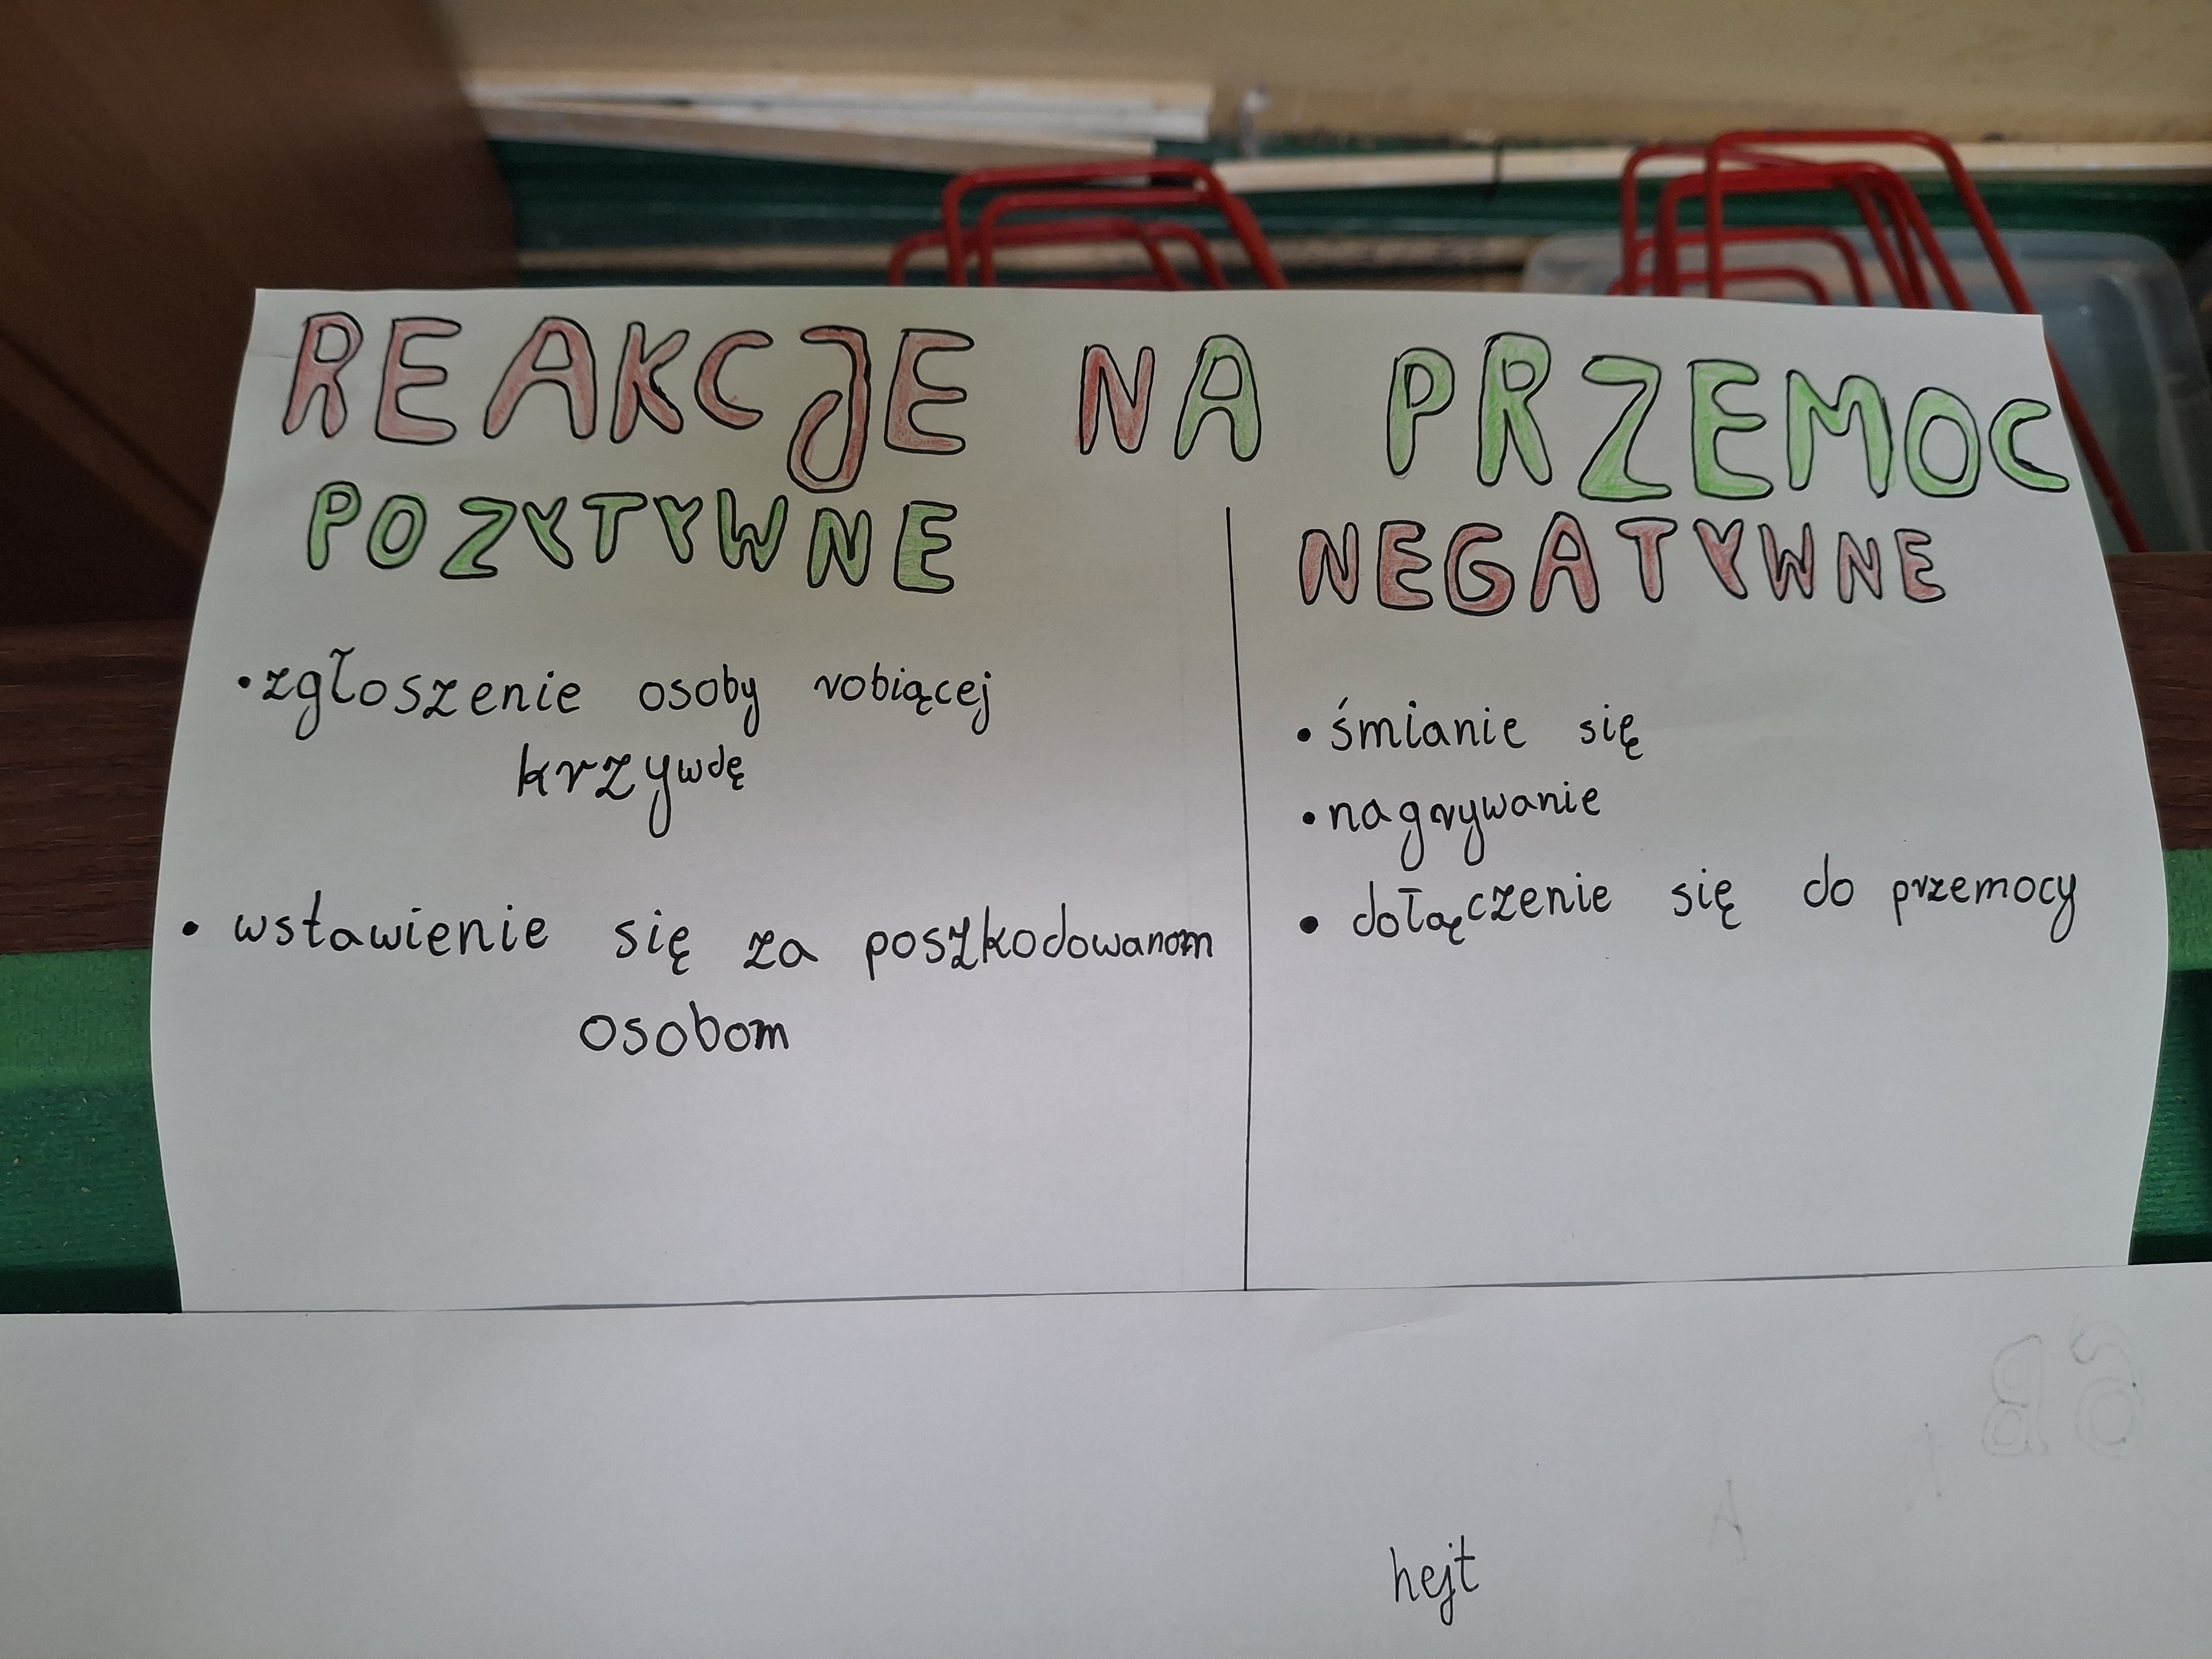 REAKCJE NA PRZEMOC
POZYTYWNE
•zgłoszenie osoby robiącej
krzywdę
• wstawienie się za poszkodowanom
osobom
NEGATYWNE
• śmianie się
•nagrywanie
• dołączenie się do przemocy
hejt